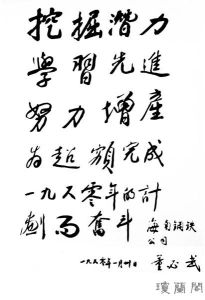 挖掘潛力
學習先進
努力增產
为超額完成
一九六零年的計
劃而奮斗
海南鋼鉄
公司
一九六零年一月卅日
董必武
瓊蘭閣